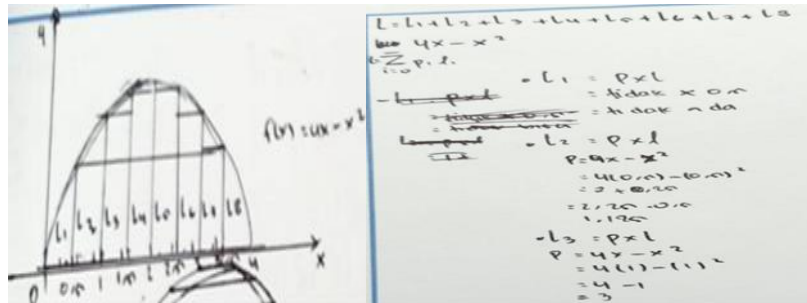 y
f(x) = 4x - x²
L1 L2 L3 L4 L5 L6 L7 L8
0 0,5 1 1,5 2 2,5 4
x
L = L1 + L2 + L3 + L4 + L5 + L6 + L7 + L8
4x - x²
• L1 = p x l
= tidak x 0,5
= tidak ada
• L2 = p x l
p = 4x - x²
= 4(0,5) - (0,5)²
= 2 + 0,25
= 2,25 . 0,5
1,125
• L3 = p x l
p = 4x - x²
= 4(1) - (1)²
= 4 - 1
= 3